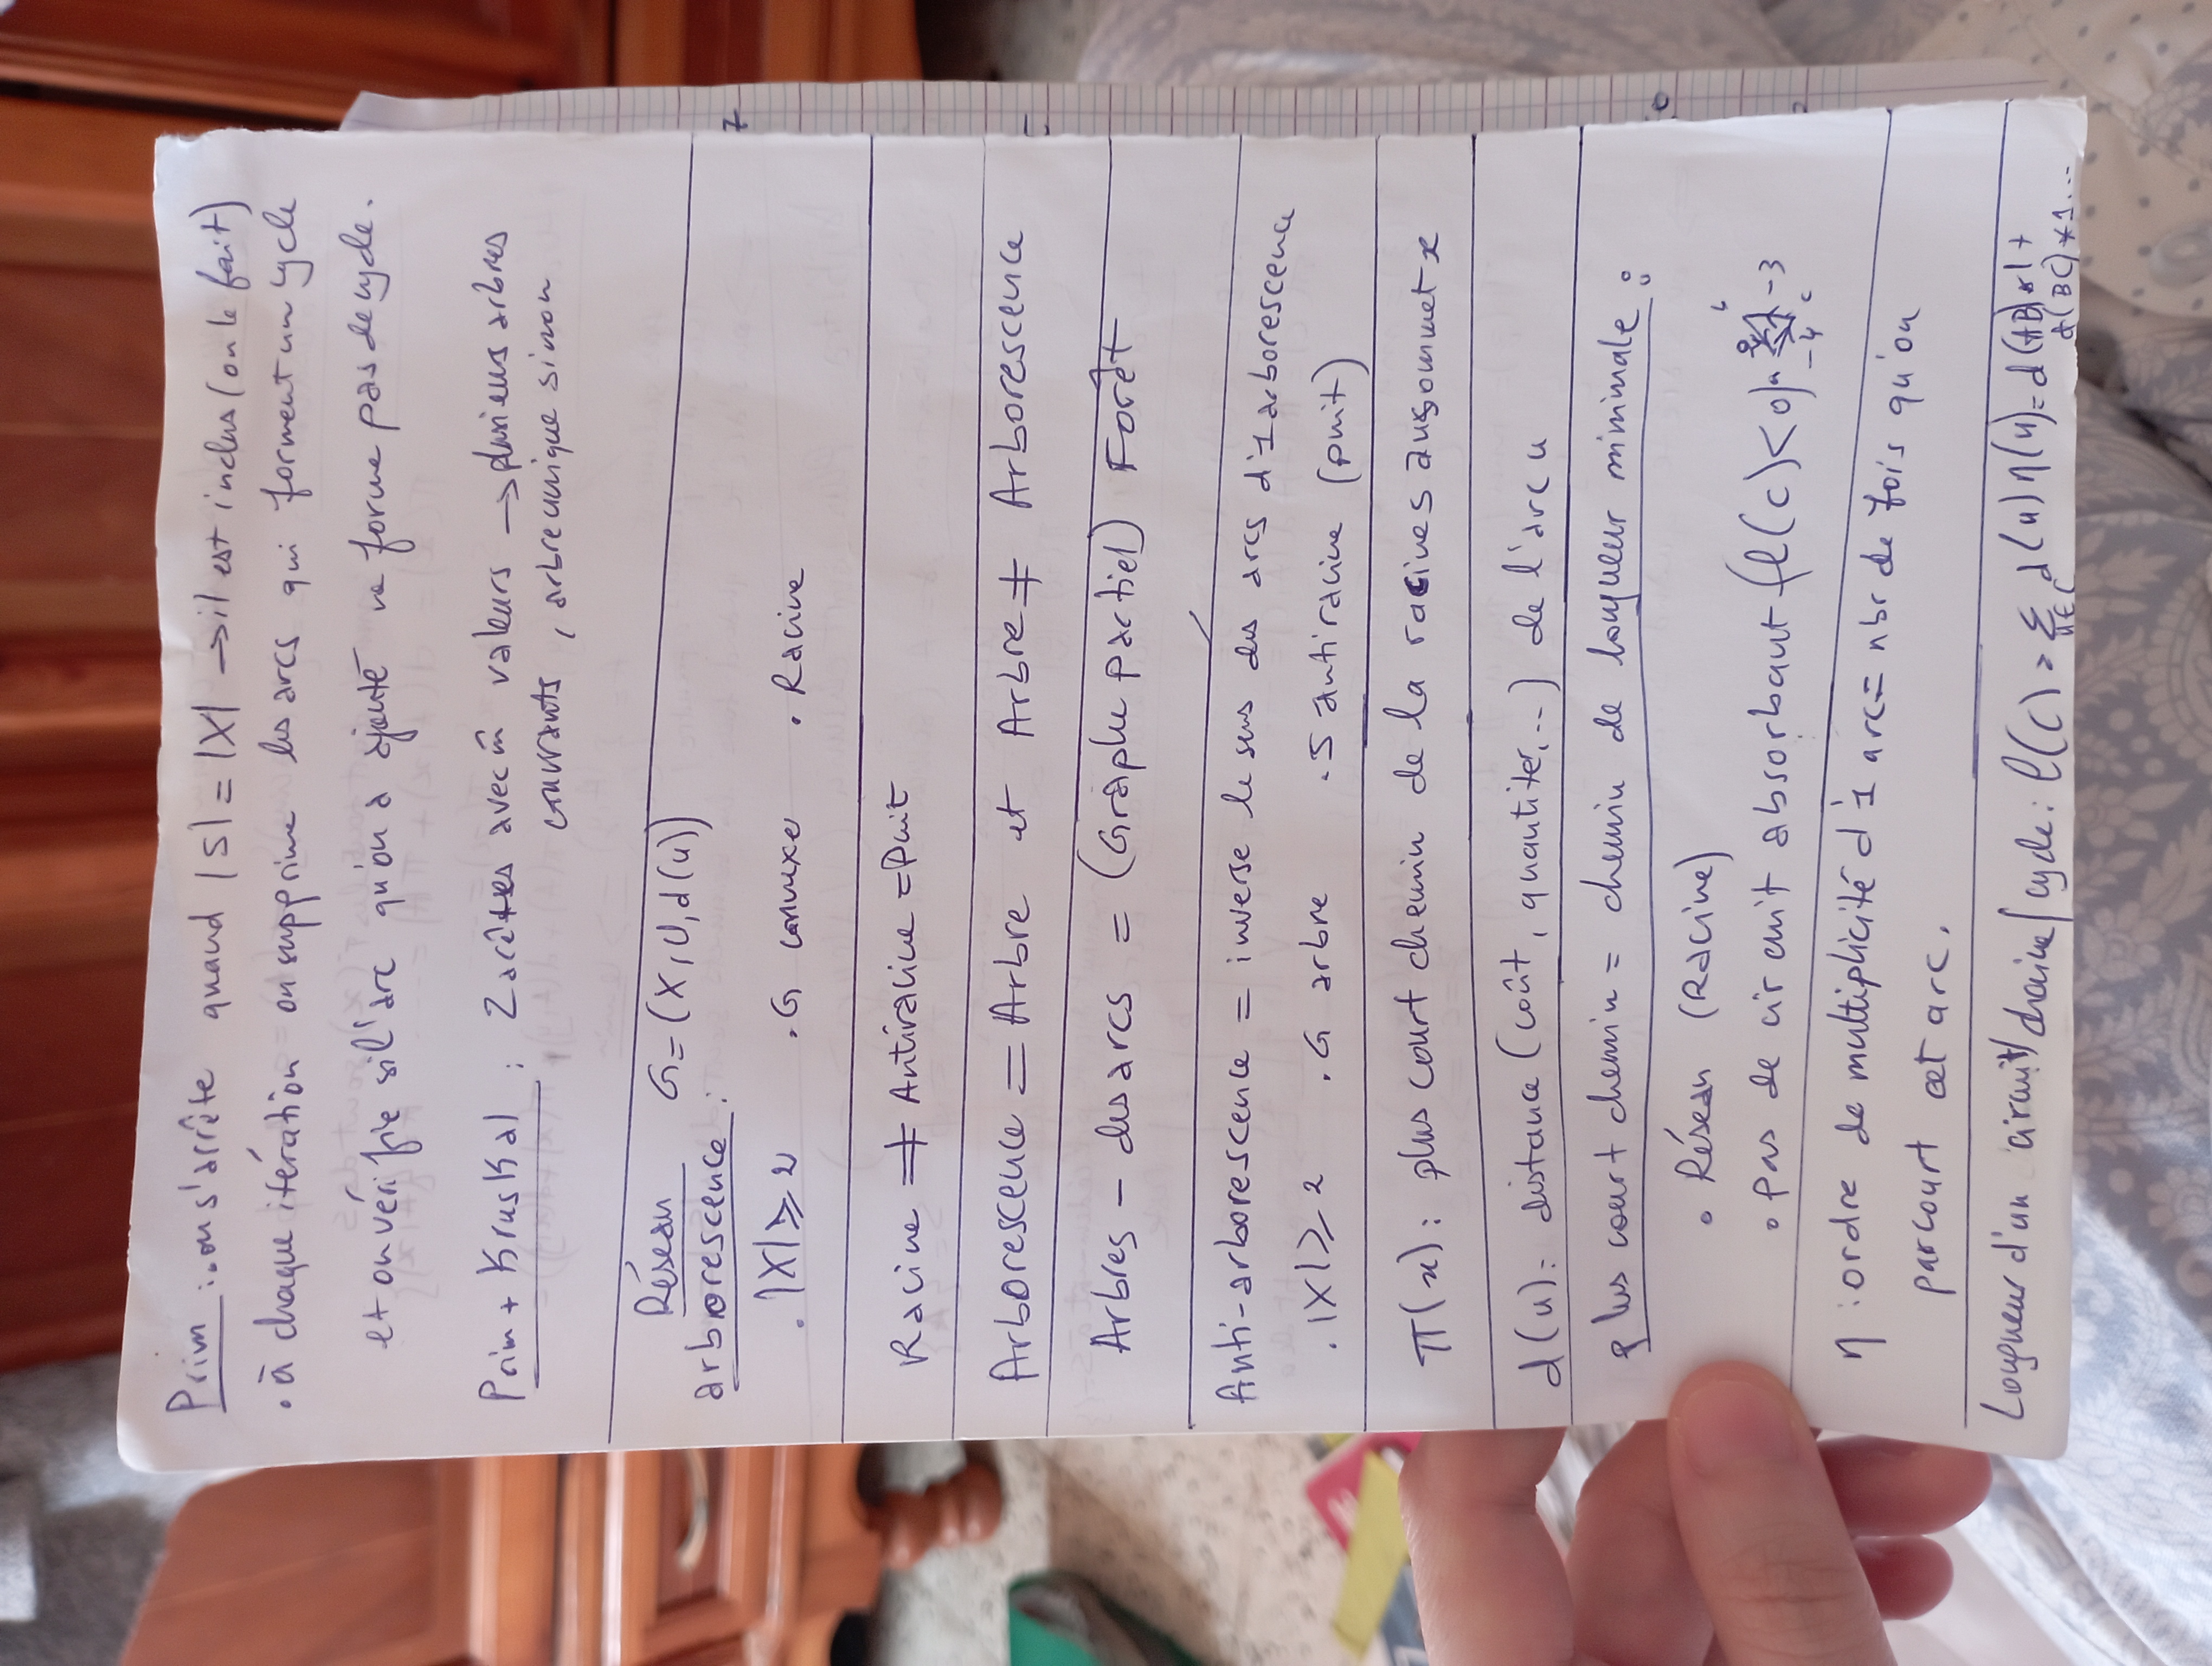 Prim : . on s'arrête quand |S| = |X| → il est inclus (on le fait)
. à chaque itération on supprime les arcs qui forment un cycle
et on vérifie si l'arc qu'on a ajouté ne forme pas de cycle.
Prim + Kruskal : 2 arêtes avec m̂ valeurs → plusieurs arbres
couvrants , arbre unique sinon
Réseau G = (X, U, d(u))
arborescence :
. |X| ⩾ 2 . G connexe . Racine
Racine ≠ Antiracine = Puit
Arborescence = Arbre et Arbre ≠ Arborescence
Arbres - des arcs = (Graphe partiel) Forêt
Anti-arborescence = inverse le sens des arcs d'1 arborescence
. |X| ⩾ 2 . G arbre . S antiracine (puit)
π(x) : plus court chemin de la racine s au sommet x
d(u) : distance (coût, quantité, ...) de l'arc u
plus court chemin = chemin de longueur minimale :
• Réseau (Racine)
• pas de circuit absorbant (l(c) < 0) -3
-4 c
η : ordre de multiplicité d'1 arc = nbr de fois qu'on
parcourt cet arc.
Longueur d'un circuit/chaine/cycle : l(C) = Σ d(u) η(u) = d(AB)*1 +
u∈C d(BC)*1...